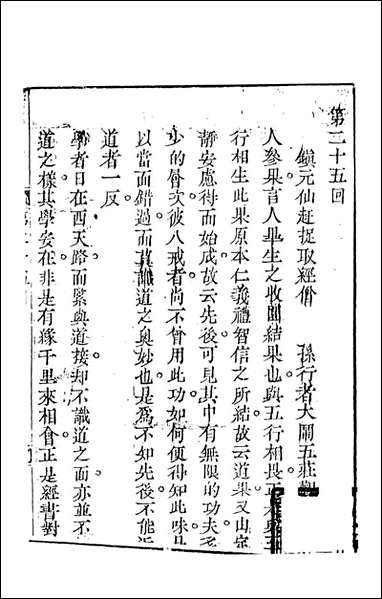 第二十五回
鎮元仙赶捉取經僧 孫行者大鬧五莊觀
人參果言人畢生之收圓結果也與五行相畏正
行相生此果原本仁義禮智信之所結故云道果又
靜安慮得而始成故云先後可見其中有無限的功夫
少的層次彼八戒者尚不曾用此功如何便得知此味
以當面錯過而莫識道之奧妙也是為不知先後不能近
道者一反
學者日在西天路而緊與道接却不識道之面亦並不
道之樣其學安在非是有緣千里來相會正是經書對